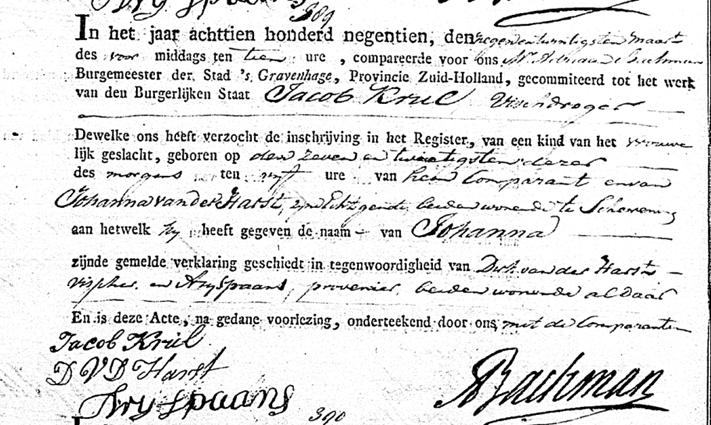 Ary Spaans 389
In het jaar achttien honderd negentien, den negenentwintigsten maart
des voor middags ten tien ure, compareerde voor ons Mr.
Burgemeester der Stad 's Gravenhage, Provincie Zuid-Holland, gecommiteerd tot het werk
van den Burgerlijken Staat Jacob Krul Vischdroger
Dewelke ons heeft verzocht de inschrijving in het Register, van een kind van het vrouwe
lijk geslacht, geboren op den zeven en twintigsten dezer
des morgens ten vijf ure van hem Comparant en van
Johanna van der Harst, zijn Echtgenote, beiden wonende te Schevening
aan hetwelk hij heeft gegeven de naam van Johanna
zijnde gemelde verklaring geschiedt in tegenwoordigheid van Dirk van der Harst
visscher en Ary Spaans, provenier, beiden wonende aldaar
En is deze Acte, na gedane voorlezing, onderteekend door ons met de Comparanten
Jacob Krul
D V D Harst
Ary Spaans
ABachman
390